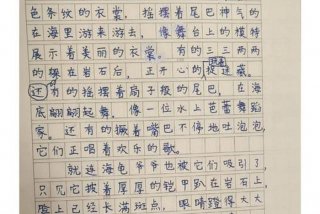 色条纹的衣裳，摇摆着尾巴神气的
在海里游来游去，像舞台上的模特
展示着美丽的衣裳。有的三三两两
的躲在岩石后，正开心的捉迷藏。
还有的摇摆着扇子般的尾巴，在海
底翩翩起舞，像一位水上芭蕾舞蹈
家。还有的撅着嘴巴不停地吐泡泡，
它们正唱着欢乐的歌。
就连海龟爷爷也被它们吸引了，
只见它披着厚厚的铠甲趴在岩石上，
脸上已经长满斑点，眼睛瞪得大大